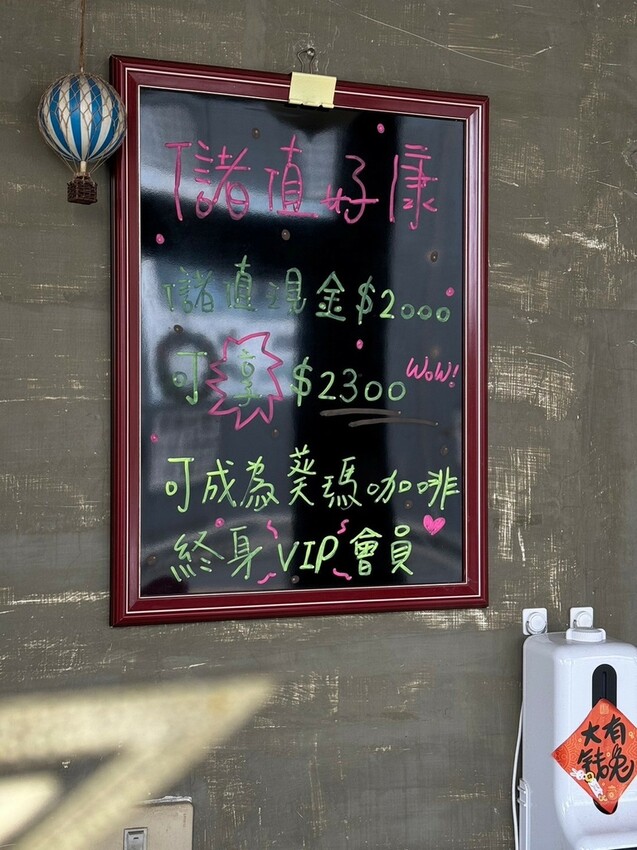 儲值好康
儲值現金$2000
可享$2300 WoW!
可成為葵瑪咖啡
終身VIP會員
大有
錢兔